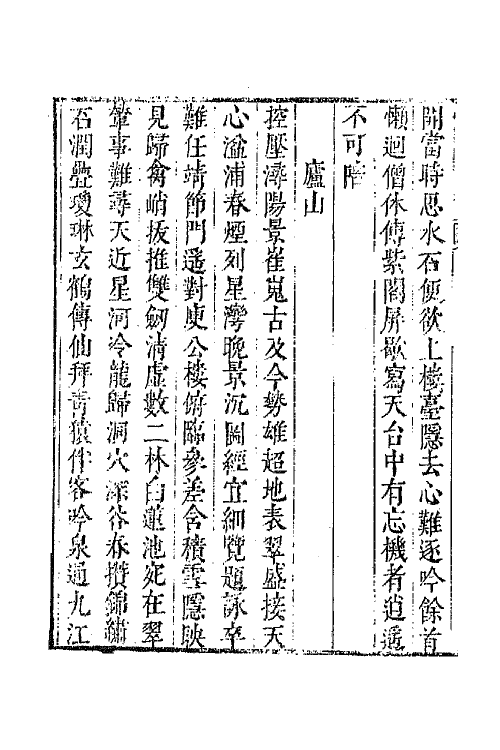 開當時思水石便欲上樓臺隱去心難逐吟餘首
懶迴僧休傳紫閣屏歇寫天台中有忘機者逍遥
不可陪
廬山
控壓潯陽景崔嵬古及今勢雄超地表翠盛接天
心湓浦春煙列星灣晚景沉圖經宜細覽題詠卒
難任靖節門遥對庾公樓俯臨參差含積雪隱映
見歸禽峭拔推雙劒清虛數二林白蓮池宛在翠
輦事難尋天近星河冷龍歸洞穴深谷春攢錦繡
石潤疊瓊琳玄鶴傳仙拜青猿伴客吟泉通九江